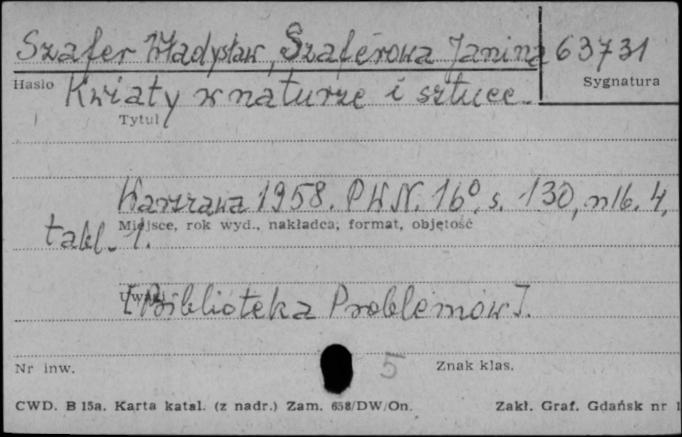 Szafer Władysław, Szaferowa Janina 63731
Hasło Sygnatura
Kwiaty w naturze i sztuce.
Tytuł
Warszawa 1958. PWN. 16º, s. 130, nlb. 4,
Miejsce, rok wyd., nakładca, format, objętość
tabl. 1.
Uwagi
[Biblioteka Problemów].
Nr inw. 5 Znak klas.
CWD. B 15a. Karta katal. (z nadr.) Zam. 658/DW/On. Zakł. Graf. Gdańsk nr 1